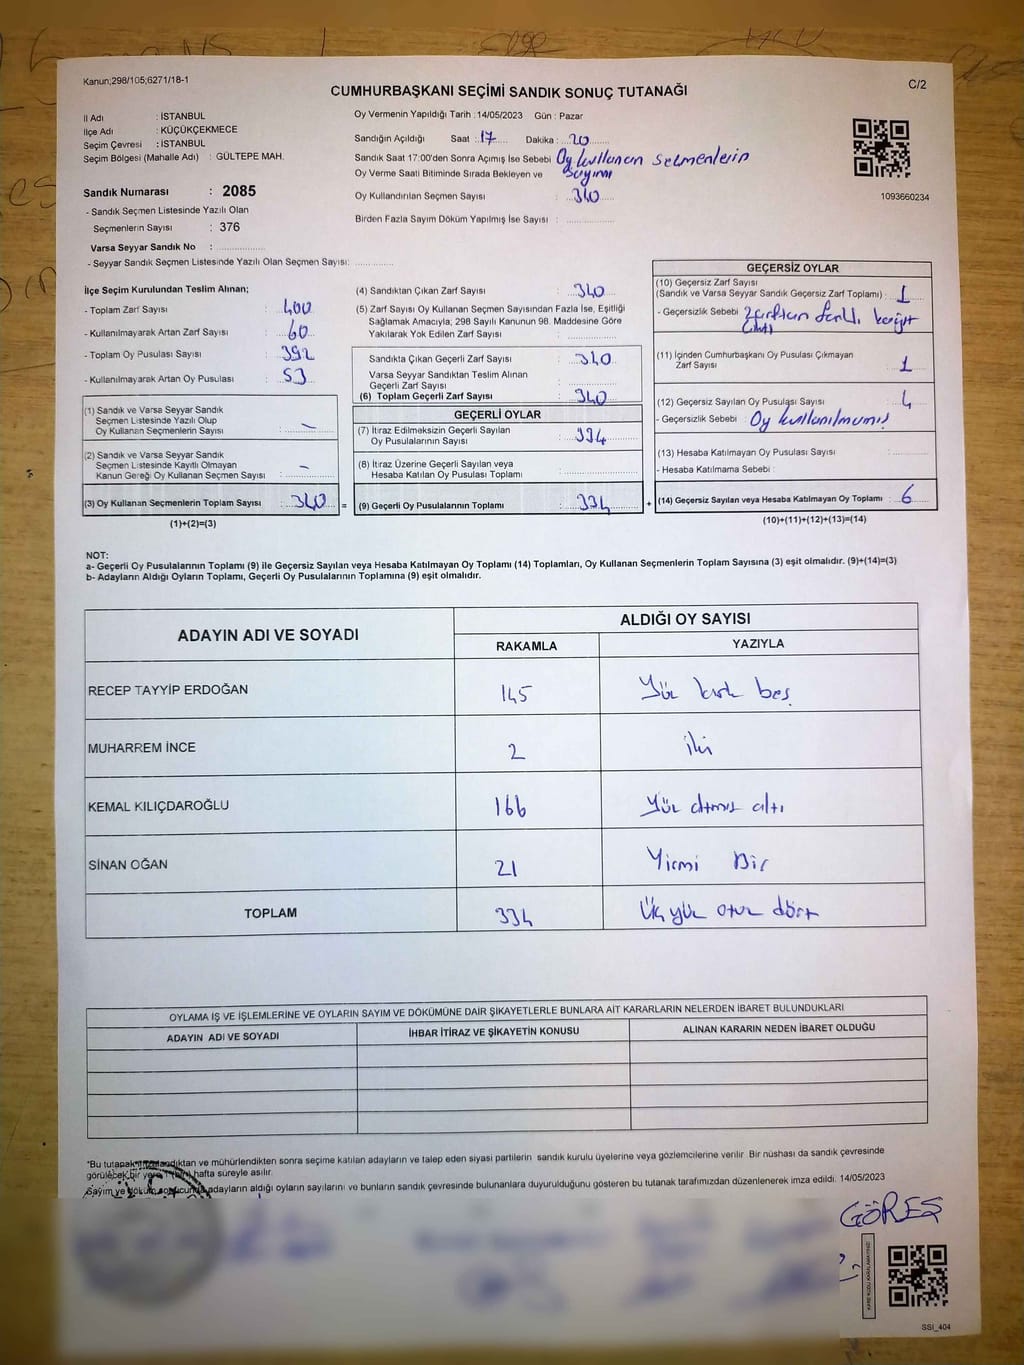 Kanun;298/105;6271/18-1
C/2
CUMHURBAŞKANI SEÇİMİ SANDIK SONUÇ TUTANAĞI
İl Adı : İSTANBUL
İlçe Adı : KÜÇÜKÇEKMECE
Seçim Çevresi : İSTANBUL
Seçim Bölgesi (Mahalle Adı) : GÜLTEPE MAH.
Sandık Numarası : 2085
- Sandık Seçmen Listesinde Yazılı Olan
Seçmenlerin Sayısı : 376
Varsa Seyyar Sandık No :
- Seyyar Sandık Seçmen Listesinde Yazılı Olan Seçmen Sayısı:
Oy Vermenin Yapıldığı Tarih : 14/05/2023 Gün : Pazar
Sandığın Açıldığı Saat : 17 Dakika : 20
Sandık Saat 17:00'den Sonra Açımış İse Sebebi Oy kullanan seçmenlerin
Oy Verme Saati Bitiminde Sırada Bekleyen ve sayımı
Oy Kullandırılan Seçmen Sayısı : 340
Birden Fazla Sayım Döküm Yapılmış İse Sayısı :
1093660234
İlçe Seçim Kurulundan Teslim Alınan;
- Toplam Zarf Sayısı : 400
- Kullanılmayarak Artan Zarf Sayısı : 60
- Toplam Oy Pusulası Sayısı : 392
- Kullanılmayarak Artan Oy Pusulası : 53
(1) Sandık ve Varsa Seyyar Sandık
Seçmen Listesinde Yazılı Olup
Oy Kullanan Seçmenlerin Sayısı : –
(2) Sandık ve Varsa Seyyar Sandık
Seçmen Listesinde Kayıtlı Olmayan
Kanun Gereği Oy Kullanan Seçmen Sayısı : –
(3) Oy Kullanan Seçmenlerin Toplam Sayısı : 340 =
(1)+(2)=(3)
(4) Sandıktan Çıkan Zarf Sayısı : 340
(5) Zarf Sayısı Oy Kullanan Seçmen Sayısından Fazla İse, Eşitliği
Sağlamak Amacıyla; 298 Sayılı Kanunun 98. Maddesine Göre
Yakılarak Yok Edilen Zarf Sayısı :
Sandıkta Çıkan Geçerli Zarf Sayısı : 340
Varsa Seyyar Sandıktan Teslim Alınan
Geçerli Zarf Sayısı :
(6) Toplam Geçerli Zarf Sayısı : 340
GEÇERLİ OYLAR
(7) İtiraz Edilmeksizin Geçerli Sayılan
Oy Pusulalarının Sayısı : 334
(8) İtiraz Üzerine Geçerli Sayılan veya
Hesaba Katılan Oy Pusulası Toplamı :
(9) Geçerli Oy Pusulalarının Toplamı : 334 +
GEÇERSİZ OYLAR
(10) Geçersiz Zarf Sayısı
(Sandık ve Varsa Seyyar Sandık Geçersiz Zarf Toplamı) : 1
- Geçersizlik Sebebi : zarftan farklı kağıt
(11) İçinden Cumhurbaşkanı Oy Pusulası Çıkmayan
Zarf Sayısı : 1
(12) Geçersiz Sayılan Oy Pusulası Sayısı : 4
- Geçersizlik Sebebi : Oy kullanılmamış
(13) Hesaba Katılmayan Oy Pusulası Sayısı :
- Hesaba Katılmama Sebebi :
(14) Geçersiz Sayılan veya Hesaba Katılmayan Oy Toplamı : 6
(10)+(11)+(12)+(13)=(14)
NOT:
a- Geçerli Oy Pusulalarının Toplamı (9) ile Geçersiz Sayılan veya Hesaba Katılmayan Oy Toplamı (14) Toplamları, Oy Kullanan Seçmenlerin Toplam Sayısına (3) eşit olmalıdır. (9)+(14)=(3)
b- Adayların Aldığı Oyların Toplamı, Geçerli Oy Pusulalarının Toplamına (9) eşit olmalıdır.
ADAYIN ADI VE SOYADI
ALDIĞI OY SAYISI
RAKAMLA YAZIYLA
RECEP TAYYİP ERDOĞAN 145 Yüz kırk beş
MUHARREM İNCE 2 iki
KEMAL KILIÇDAROĞLU 166 Yüz atmış altı
SİNAN OĞAN 21 Yirmi Bir
TOPLAM 334 Üç yüz otuz dört
OYLAMA İŞ VE İŞLEMLERİNE VE OYLARIN SAYIM VE DÖKÜMÜNE DAİR ŞİKAYETLERLE BUNLARA AİT KARARLARIN NELERDEN İBARET BULUNDUKLARI
ADAYIN ADI VE SOYADI İHBAR İTİRAZ VE ŞİKAYETİN KONUSU ALINAN KARARIN NEDEN İBARET OLDUĞU
"Bu tutanak imzalandıktan ve mühürlendikten sonra seçime katılan adayların ve talep eden siyasi partilerin sandık kurulu üyelerine veya gözlemcilerine verilir. Bir nüshası da sandık çevresinde
görülebilecek bir yere 1 hafta süreyle asılır.
Sayım ve döküm sonucunda adayların aldığı oyların sayılarını ve bunların sandık çevresinde bulunanlara duyurulduğunu gösteren bu tutanak tarafımızdan düzenlenerek imza edildi. 14/05/2023
GÖREŞ
SSİ_404